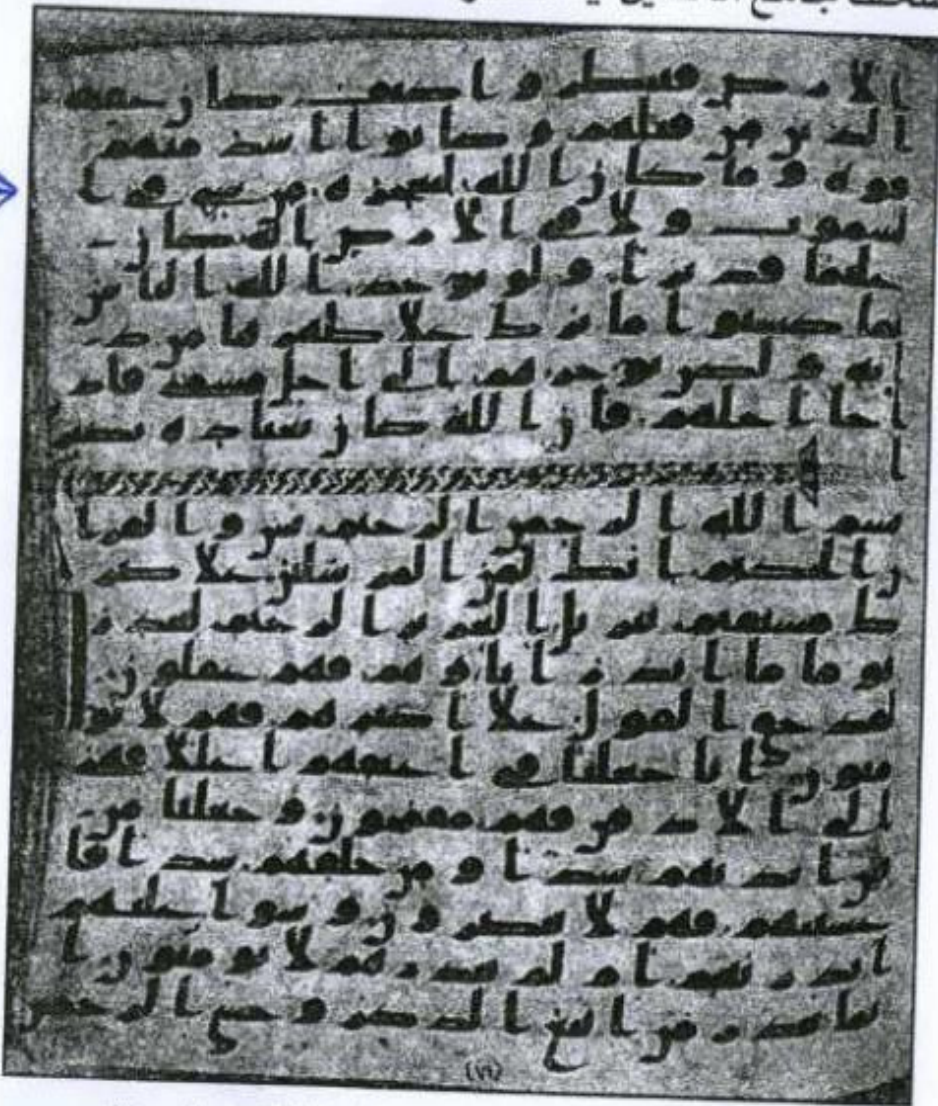 الارض فينظروا كيف كان عقبة
الذين من قبلهم وكانوا اشد منهم
قوة وما كان الله ليعجزه من شي في ا
لسموت ولا في الارض انه كان
عليما قديرا ولو يوخذ الله الناس
بما كسبوا ما ترك علا ظهرها من د
ابة ولكن يوخرهم الى اجل مسمى فاذ
ا جا اجلهم فان الله كان بعباده بصير
ا
بسم الله الرحمن الرحيم يس والقرا
ن الحكيم انك لمن المرسلين علا صر
ط مستقيم تنزيل العزيز الرحيم لتنذر
قوما ما انذر اباوهم فهم غفلون
لقد حق القول علا اكثرهم فهم لا يو
منون انا جعلنا في اعنقهم اغللا فهي
الى الاذقن فهم مقمحون وجعلنا من
بين ايديهم سدا ومن خلفهم سدا فا
غشينهم فهم لا يبصرون وسوا عليهم
انذرتهم ام لم تنذرهم لا يومنون ا
نما تنذر من اتبع الذكر وخشي الرحمن